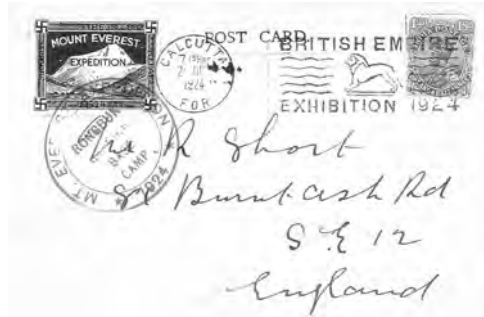 POST CARD
MOUNT EVEREST
EXPEDITION
CALCUTTA
1924
FOR
BRITISH EMPIRE
EXHIBITION 1924
MT. EVEREST EXPEDITION
RONGBUK
BASE
CAMP
1924
R Short
Burnt ash Rd
S.E 12
England